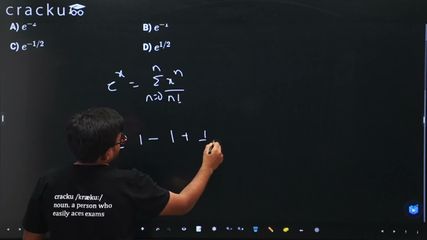 cracku
A) e⁻²
B) e⁻¹
C) e⁻¹/²
D) e¹/²
eˣ = Σ xⁿ/n!
n
n=0
1 - 1 + 1
cracku /kræku:/
noun. a person who
easily aces exams